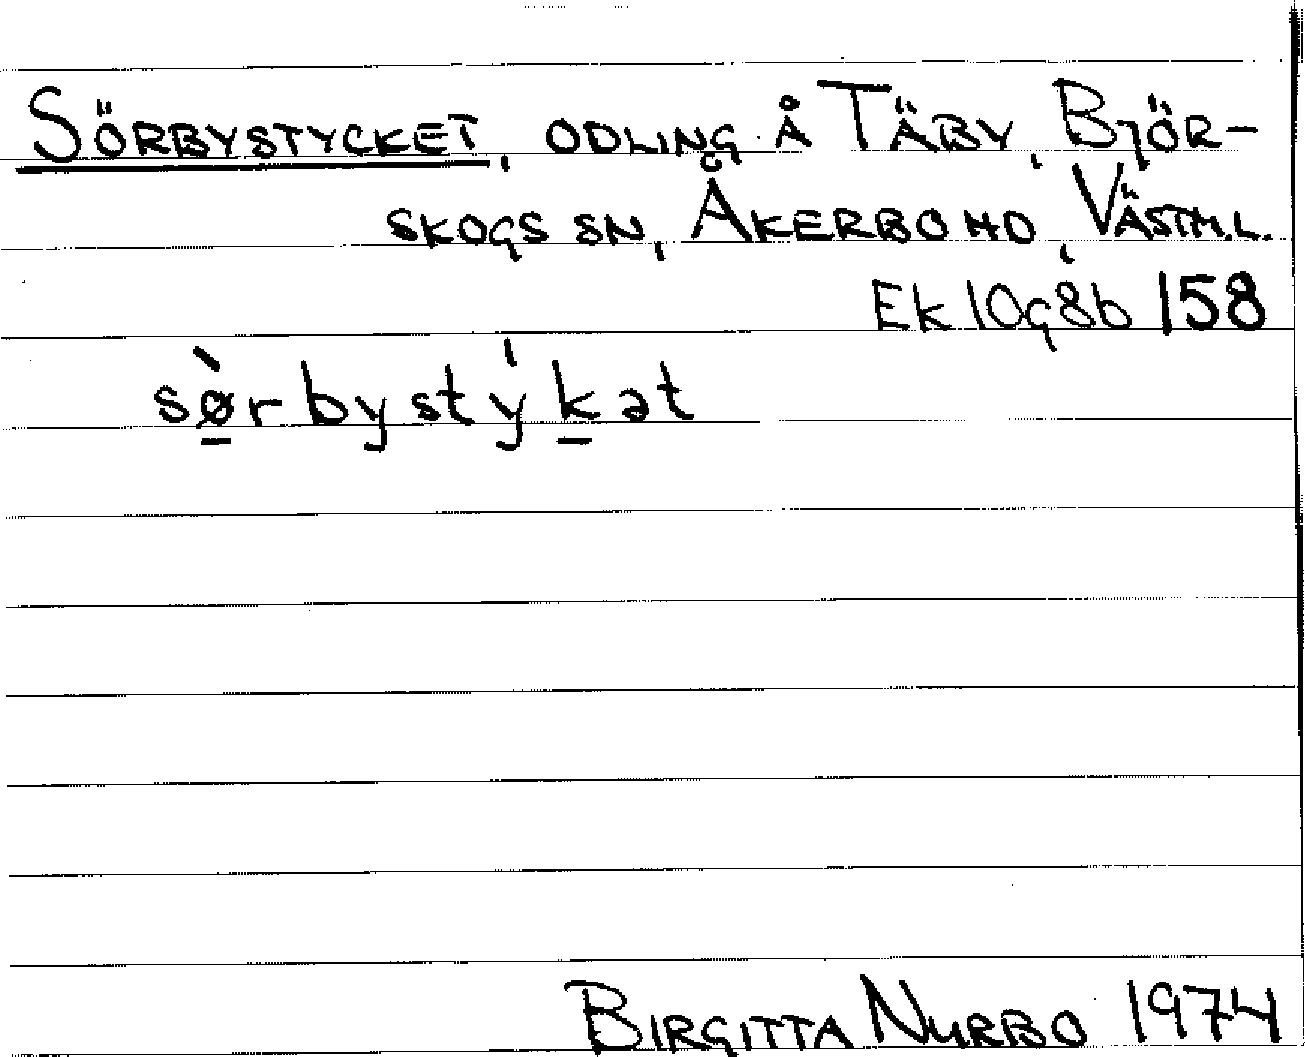 SÖRBYSTYCKET, ODLING Å TÄBY, BJÖR-
SKOGS SN, ÅKERBO HD, VÄSTM.L.
Ek 10g8b 158
sø̀rbystýkət
BIRGITTA NURBO 1974